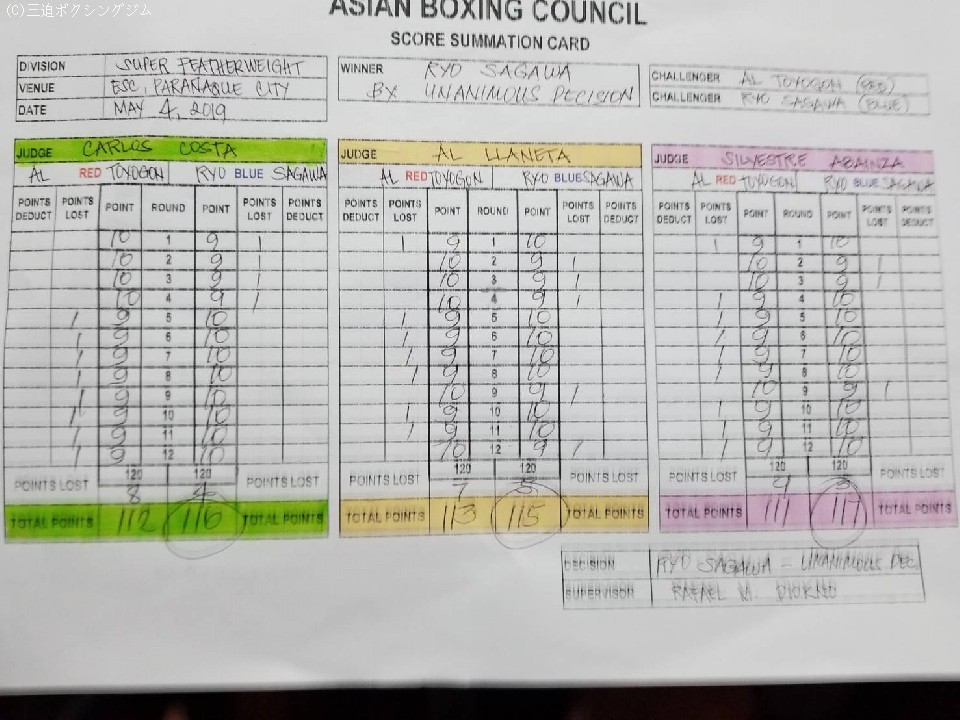 (C)三迫ボクシングジム
ASIAN BOXING COUNCIL
SCORE SUMMATION CARD
DIVISION SUPER FEATHERWEIGHT
VENUE ESC, PARANAQUE CITY
DATE MAY 4, 2019
WINNER RYO SAGAWA
BY UNANIMOUS DECISION
CHALLENGER AL TOYOGON (RED)
CHALLENGER RYO SAGAWA (BLUE)
JUDGE CARLOS COSTA
AL RED TOYOGON RYO BLUE SAGAWA
POINTS DEDUCT POINTS LOST POINT ROUND POINT POINTS LOST POINTS DEDUCT
10 1 9 1
10 2 9 1
10 3 9 1
10 4 9 1
1 9 5 10
1 9 6 10
1 9 7 10
1 9 8 10
1 9 9 10
1 9 10 10
1 9 11 10
1 9 12 10
120 120
POINTS LOST 8 4 POINTS LOST
TOTAL POINTS 112 116 TOTAL POINTS
JUDGE AL LLANETA
AL RED TOYOGON RYO BLUE SAGAWA
POINTS DEDUCT POINTS LOST POINT ROUND POINT POINTS LOST POINTS DEDUCT
1 9 1 10
10 2 9 1
10 3 9 1
10 4 9 1
1 9 5 10
1 9 6 10
1 9 7 10
1 9 8 10
10 9 9 1
1 9 10 10
1 9 11 10
10 12 9 1
120 120
POINTS LOST 7 5 POINTS LOST
TOTAL POINTS 113 115 TOTAL POINTS
JUDGE SILVESTRE ABAINZA
AL RED TOYOGON RYO BLUE SAGAWA
POINTS DEDUCT POINTS LOST POINT ROUND POINT POINTS LOST POINTS DEDUCT
1 9 1 10
10 2 9 1
10 3 9 1
1 9 4 10
1 9 5 10
1 9 6 10
1 9 7 10
1 9 8 10
10 9 9 1
1 9 10 10
1 9 11 10
1 9 12 10
120 120
POINTS LOST 9 3 POINTS LOST
TOTAL POINTS 111 117 TOTAL POINTS
DECISION RYO SAGAWA - UNANIMOUS DEC.
SUPERVISOR RAFAEL M. DIOKNO